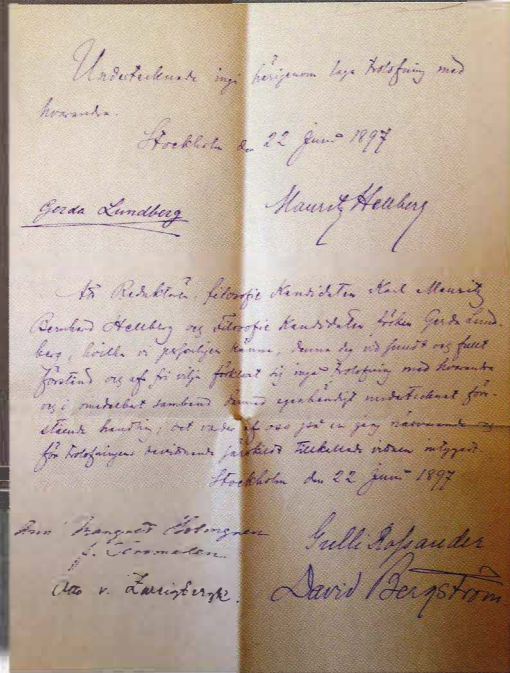 Undertecknade ingå härigenom laga trolofning med
hvarandra.
Stockholm den 22 Juni 1897
Gerda Lundberg
Mauritz Hellberg
Att Redaktören, filosofie Kandidaten Karl Mauritz
Bernhard Hellberg och Filosofie Kandidaten fröken Gerda Lund-
berg, hvilka vi personligen känna, denna dag vid sundt och fullt
förstånd och af fri vilja förklarat sig ingå trolofning med hvarandra
och i omedelbart samband dermed egenhändigt undertecknat före-
stående handling; det varder af oss på en gång närvarande
för trolofningens bevittnande särskildt tillkallade vittnen intygadt
Stockholm den 22 Juni 1897
Ann Margret Holmgren
f. Tersmeden
Gulli Rossander
Otto v. Zweigbergk.
David Bergström.